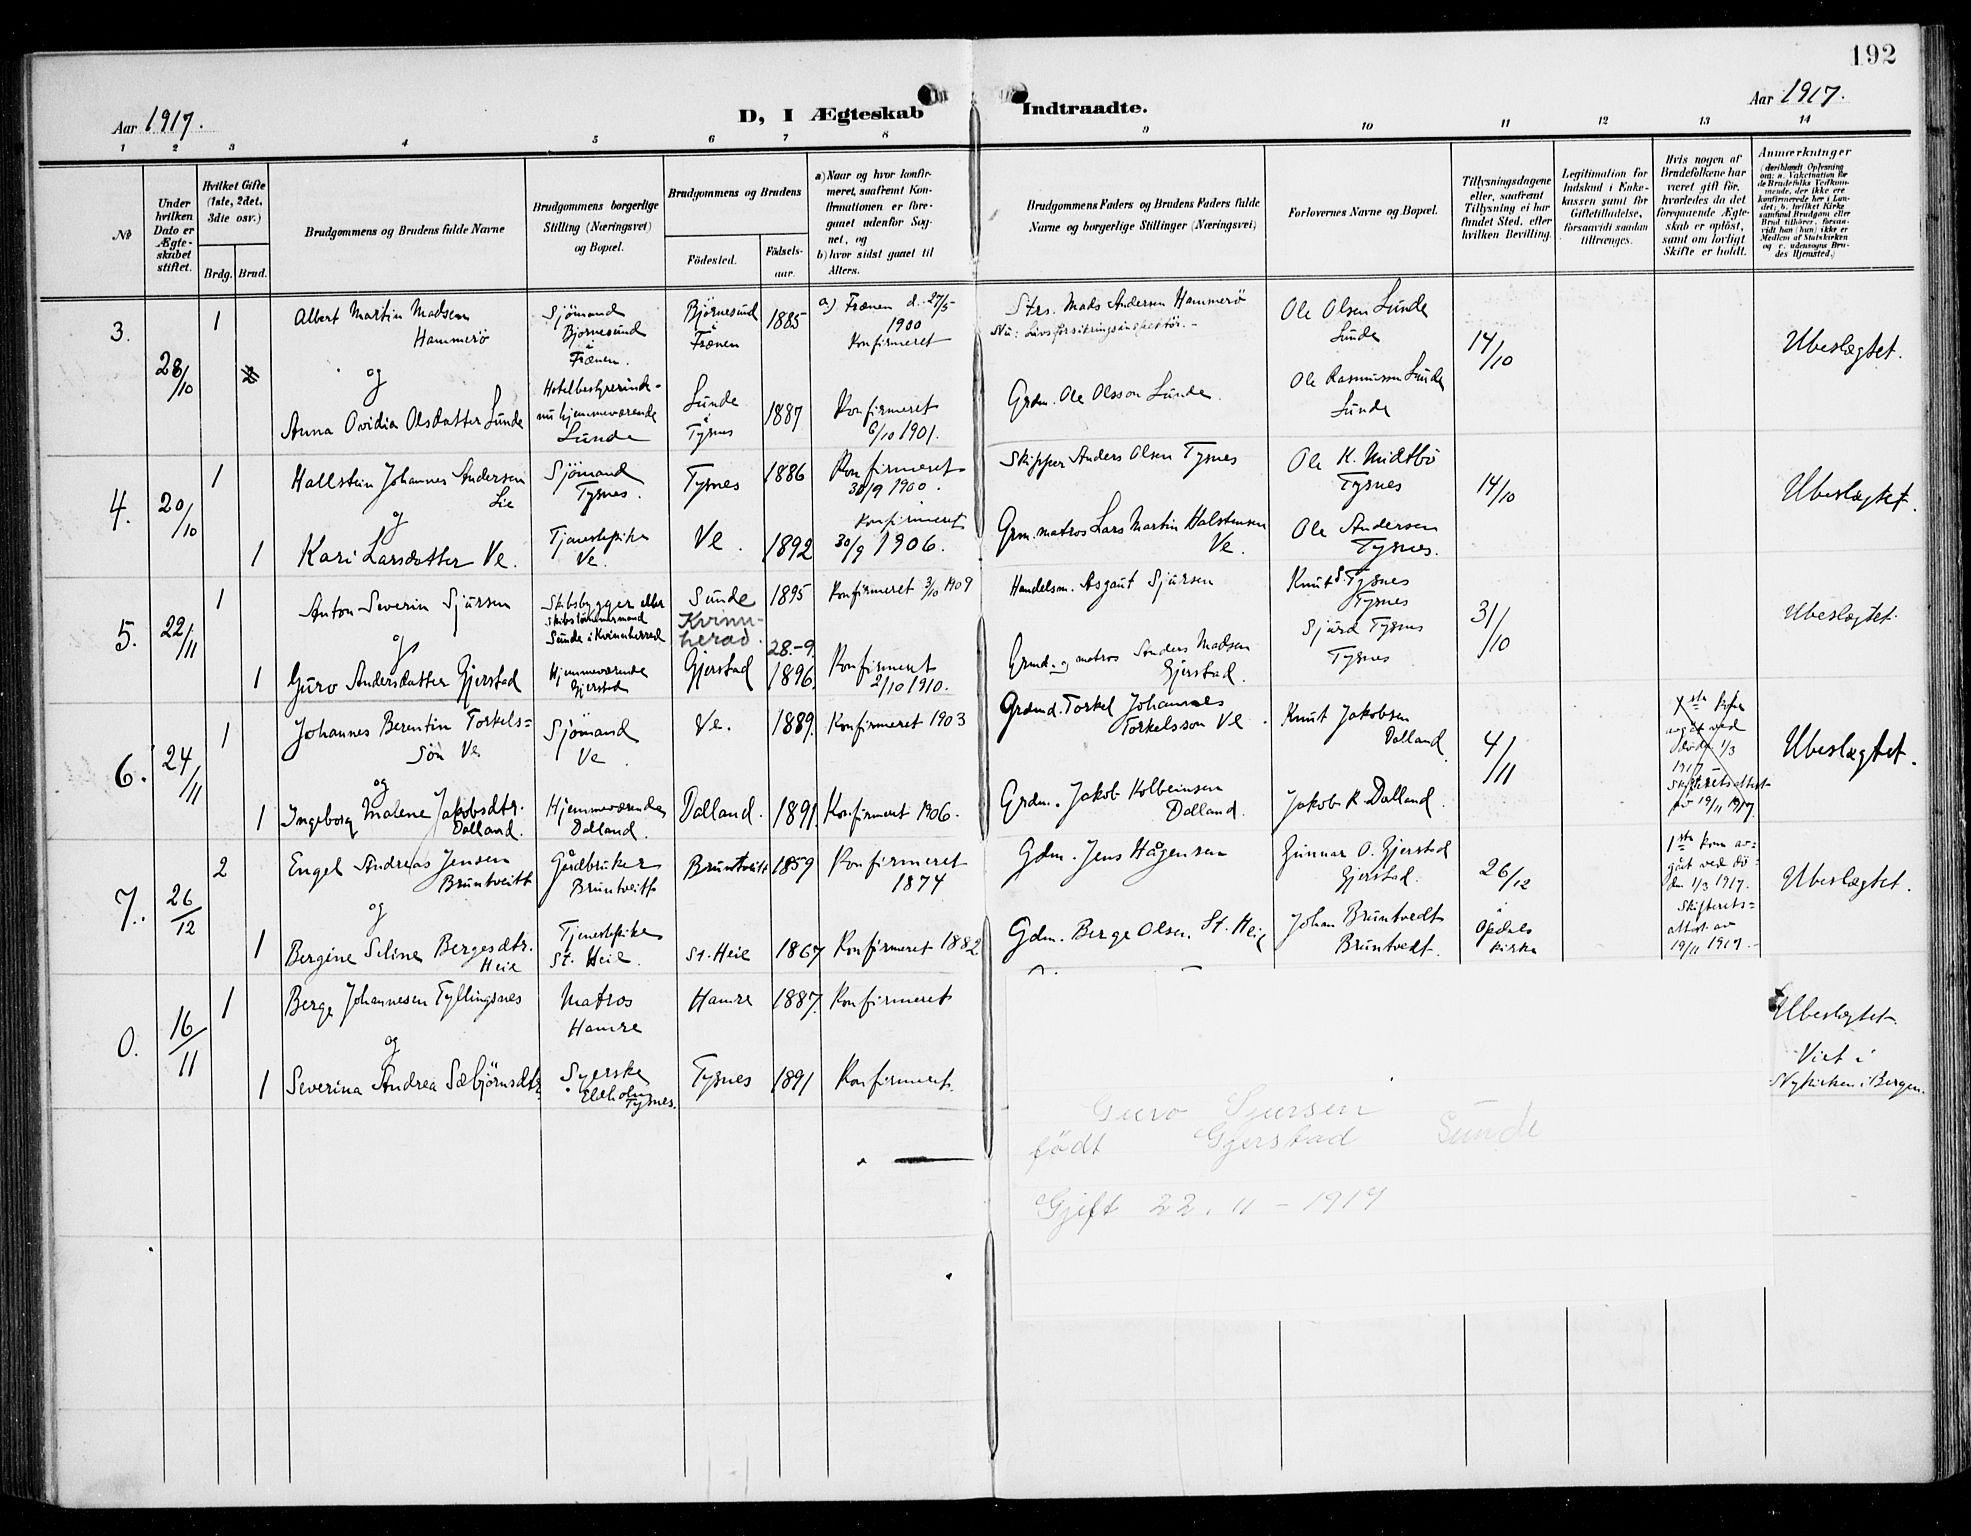 192
Aar 1917.
D, I Ægteskab Indtraadte.
Aar 1917.
1 2 3 4 5 6 7 8 9 10 11 12 13 14
№
Under hvilken Dato er Ægteskabet stiftet.
Hvilket Gifte (1ste, 2det, 3die osv.)
Brdg. Brud.
Brudgommens og Brudens fulde Navne
Brudgommens borgerlige Stilling (Næringsvei) og Bopæl.
Brudgommens og Brudens
Fødested.
Fødselsaar.
a) Naar og hvor konfirmeret, saafremt Konfirmationen er foregaaet udenfor Sognet, og
b) hvor sidst gaaet til Alters.
Brudgommens Faders og Brudens Faders fulde Navne og borgerlige Stillinger (Næringsvei)
Forlovernes Navne og Bopæl.
Tillysningsdagene eller, saafremt Tillysning ei har fundet Sted, efter hvilken Bevilling.
Legitimation for Indskud i Enkekassen samt for Giftetilladelse, forsaavidt saadan tiltrænges.
Hvis nogen af Brudefolkene har været gift før, hvorledes da det foregaaende Ægteskab er opløst, samt om lovligt Skifte er holdt.
Anmærkninger
(deriblandt Oplysning om: a. Vakcination for de Brudefolks Vedkommende, der ikke ere konfirmerede her i Landet; b. hvilket Kirkesamfund Brudgom eller Brud tilhører, forsaavidt han (hun) ikke er Medlem af Statskirken og c. udensogns Brudes Hjemsted.)
3. 28/10 1 Albert Martin Madsen Hammerö
Sjömand Bjornesund i Frænen.
Björnesund i Frænen 1885
a) Frænen d. 27/5 1900 Konfirmeret
Strs. Mads Andersen Hammerö
Nu: Livsforsikringsinspektör.
Ole Olsen Lunde Lunde
14/10
Ubeslægtet.
og
Anna Ovidia Olsdatter Lunde
Hotelbestyrerinde - nu hjemmeværende Lunde
Lunde i Tysnes 1887
Konfirmeret 6/10 1901.
Grdm. Ole Olsson Lunde.
Ole Rasmussen Lunde Lunde
4. 20/10 1 Hallstein Johannes Andersen Lie
Sjömand Tysnes.
Tysnes 1886
Konfirmeret 30/9 1900.
Skipper Anders Olsen Tysnes
Ole K. Midtbö Tysnes
14/10
Ubeslægtet.
og
1 Kari Larsdatter Ve.
Tjenestepike Ve.
Ve. 1892
Konfirmeret 30/9 1906.
Grm. matros Lars Martin Halstensen Ve.
Ole Andersen Tysnes.
5. 22/11 1 Anton Severin Sjursen
Skibsbygger eller skibstömmermand Sunde i Kvinnherred
Sunde Kvinnherad. 1895
Konfirmeret 3/10 1909
Handelsm. Asgaut Sjursen
Knut S. Tysnes Tysnes
31/10
Ubeslægtet.
og
1 Guro Andersdatter Gjerstad
Hjemmeværende Gjerstad
Gjerstad 28.-9. 1896.
Konfirmeret 2/10 1910.
Grmd. og matros Anders Madsen Gjerstad.
Sjurd Tysnes Tysnes
6. 24/11 1 Johannes Berentin Torkelsson Ve
Sjömand Ve
Ve. 1889.
Konfirmeret 1903
Grdmd. Torkel Johannes Torkelsson Ve.
Knut Jakobsen Dalland
4/11
1ste kone avgåt ved döden 1/3 1917 Skifteretsattest av 19/11 1917.
Ubeslægtet.
og
1 Ingeborg Malene Jakobsdtr. Dalland.
Hjemmeværende Dalland.
Dalland. 1891.
Konfirmeret 1906.
Grdm. Jakob Kolbeinsen Dalland.
Jakob K. Dalland.
7. 26/12 2 Engel Andreas Jensen Bruntveitt
Gårdbruker Bruntveitt
Bruntveitt 1859
Konfirmeret 1874
Gdm. Jens Hågensen
Gunnar O. Gjerstad Gjerstad.
26/12 i Opdals kirke
1ste kone avgåt ved döden 1/3 1917. Skifteretsattest av 19/11 1917.
Ubeslægtet.
og
1 Bergine Seline Bergesdtr. Heie
Tjenestepike St. Heie.
St. Heie 1867
Konfirmeret 1882
Gdm. Berge Olsen. St. Heie
Johan Bruntvedt Bruntvedt.
0. 16/11 1 Berge Johannesen Tyllingsnes
Matros Hamre
Hamre 1887.
Konfirmeret
Ubeslægtet.
Viet i Nykirken i Bergen.
og
1 Severina Andrea Sæbjörnsdtr
Syerske Tysnes.
Tysnes 1891
Konfirmeret.
Guro Sjursen
födt Gjerstad Sunde
Gjift 22. 11 - 1917